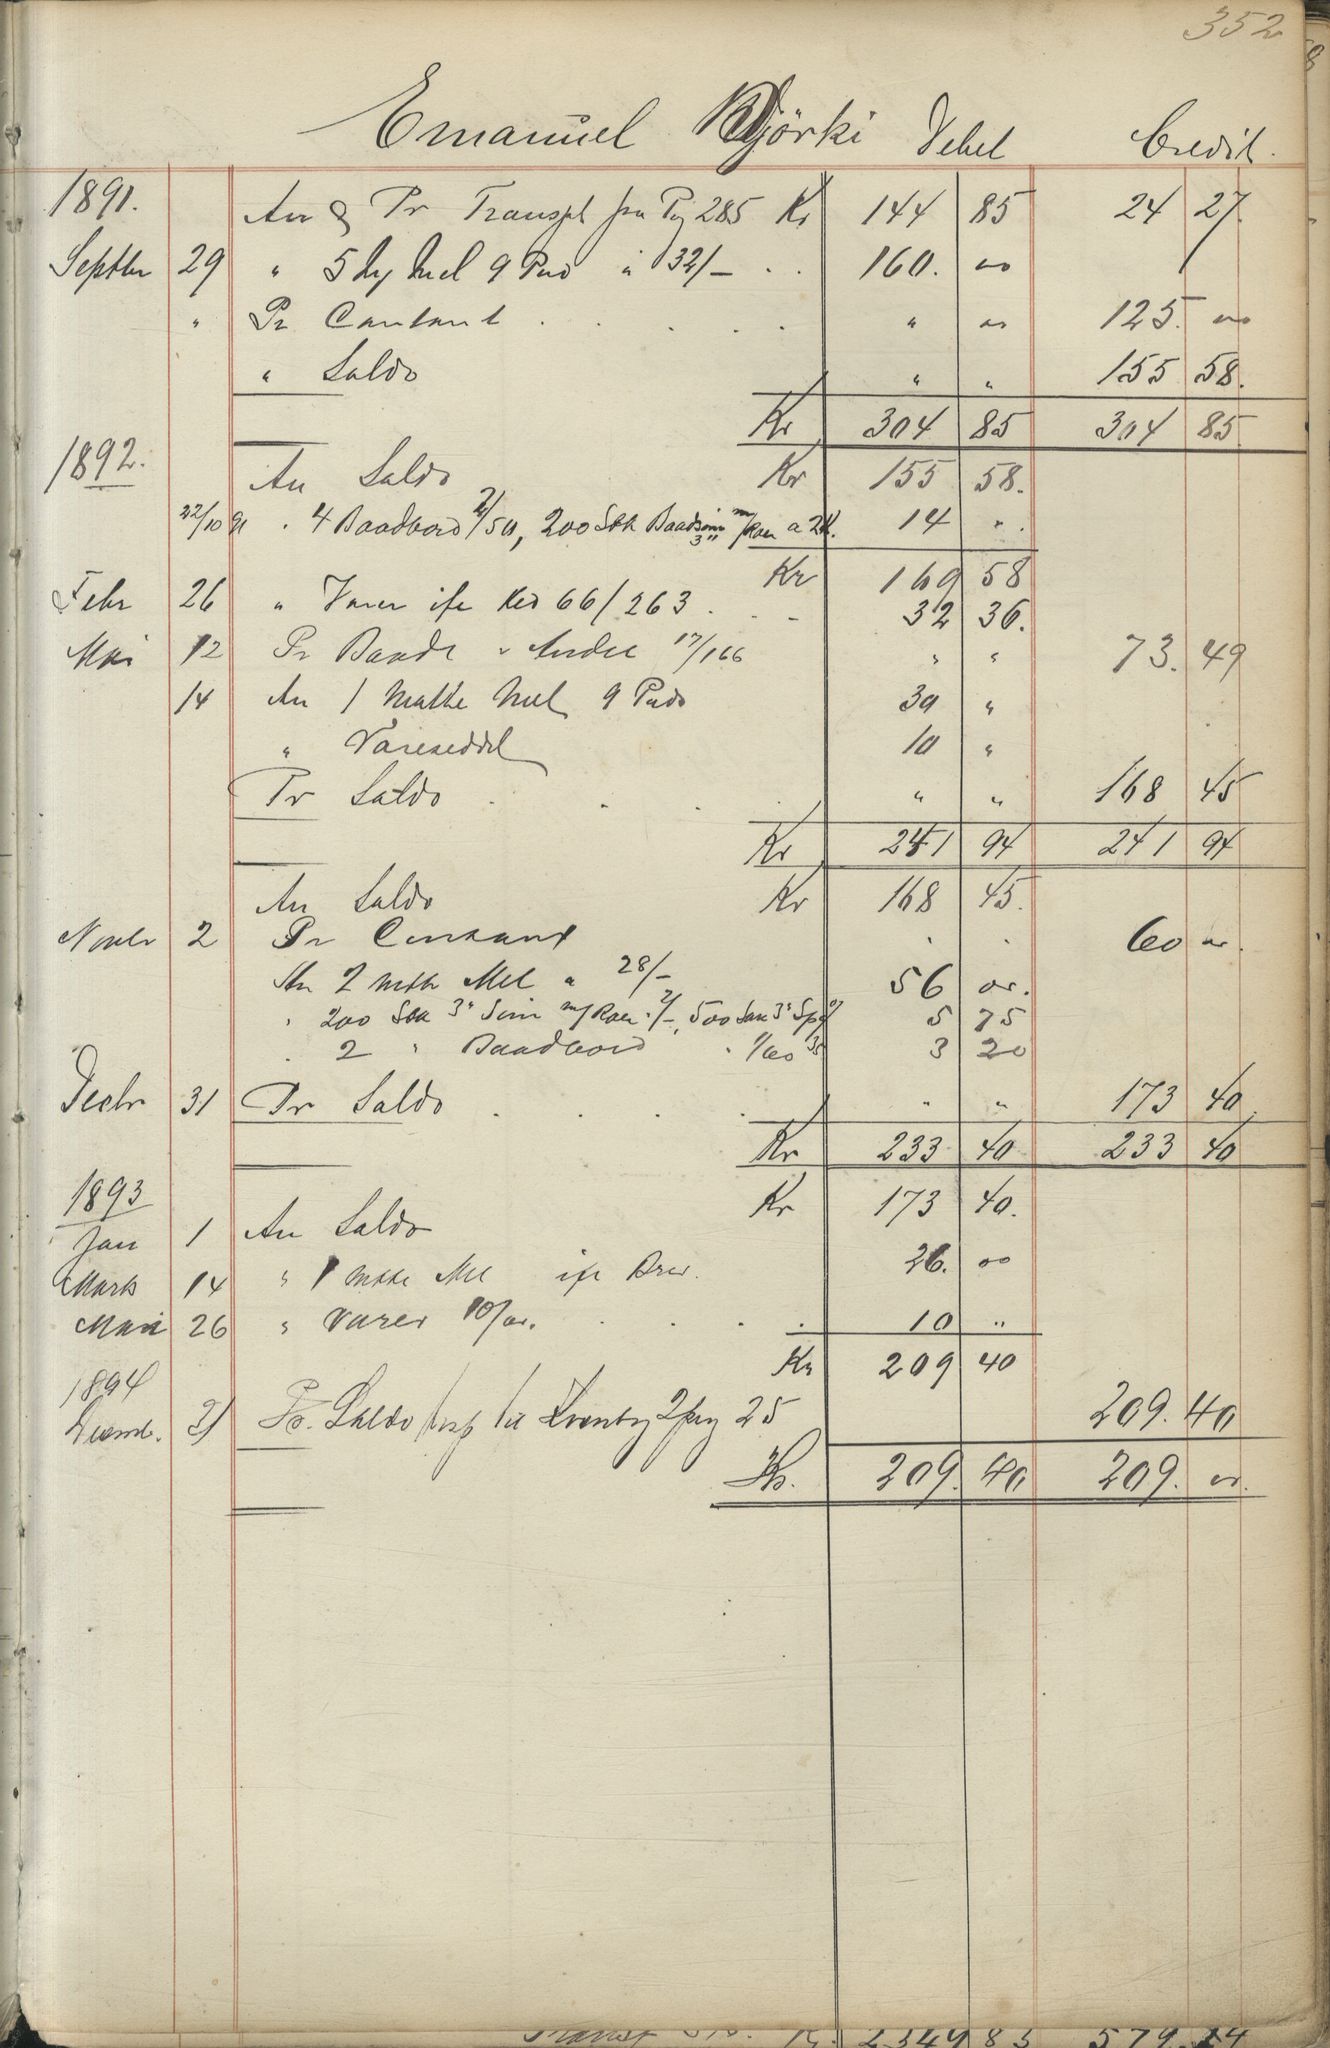 352
Emanuel Björki Debet Credit.
1891. An & Pr Transpt fra Pag 285 Kr 144 85 24 27
Septbr 29 " 5 Mel 9 Pud a 32/- 160. 00
" Pr Contant " 00 125. 00
" Saldo " " 155 58.
Kr 304 85 304 85
1892. An Saldo Kr 155 58.
22/10 91 " 4 Baadbord 2/50, 200 Stk Baadsøm 3" m/Roer a 2 Kr. 14 "
Kr 169 58
Febr 26 " Varer ifr Kld 66/263 32 36.
Mai 12 Pr Baade 17/166 " " 73. 49
14 An 1 Matte Mel 9 Puds 30 "
" Vareseddel 10 "
Pr Saldo " " 168 45
Kr 241 94 241 94
An Saldo Kr 168 45.
Novbr 2 Pr Contant . . 60 00.
An 2 mtr Mel a 28/- 56 00.
" 200 Stk 3" Søm m/Roer 2/-, 500 Stk 3" Spg 5 75
" 2 " Baadbord 1/60 3 20
Decbr 31 Pr Saldo " " 173 40
Kr 233 40 233 40
1893 Kr 173 40.
Jan 1 An Saldo
Marts 14 " 1 matte Mel ifr 26. 00
Mai 26 " Varer 10/00. 10 "
Kr 209 40
1894
Decemb. 31 Pr. Saldo 2 pag 25 209. 40
Kr. 209. 40 209. 00.
Transp Kr. 2349 83 579. 14